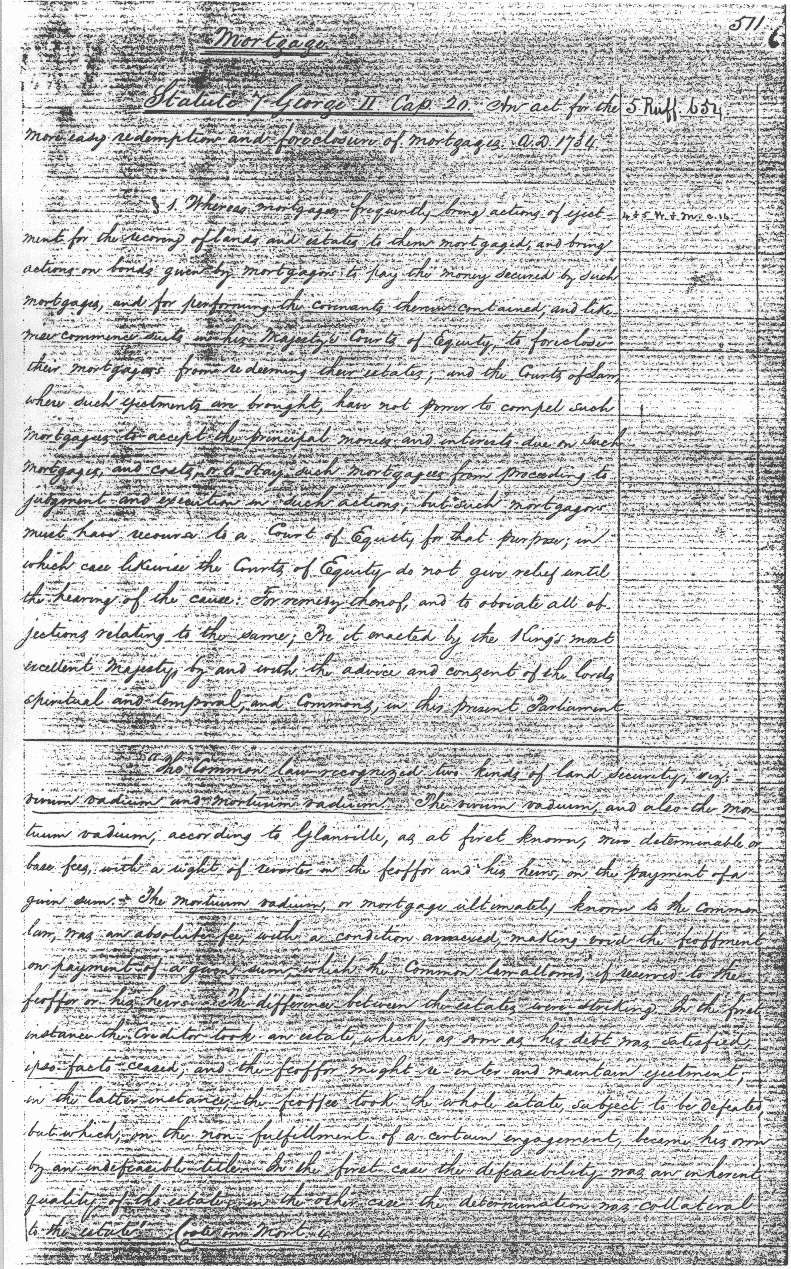 511
Mortgage.
Statute 7 George II Cap. 20. An act for the
5 Ruff. 654.
more easy redemption and foreclosure of mortgages. A.D. 1734
§ 1. Whereas mortgagees frequently bring actions of eject-
4 & 5 W. & M. c. 16.
ment for the recovery of lands and estates to them mortgaged, and bring
actions on bonds given by mortgagors to pay the money secured by such
mortgages, and for performing the covenants therein contained, and like-
wise commence suits in his Majesty's Courts of Equity, to foreclose
their mortgagors from redeeming their estates; and the Courts of Law,
where such ejectments are brought, have not power to compel such
mortgagees to accept the principal monies and interests due on such
mortgages, and costs, or to stay such mortgagees from proceeding to
judgment and execution in such actions; but such mortgagors
must have recourse to a Court of Equity for that purpose; in
which case likewise the Courts of Equity do not give relief until
the hearing of the cause: For remedy thereof, and to obviate all ob-
jections relating to the same; Be it enacted by the King's most
excellent Majesty, by and with the advice and consent of the lords
spiritual and temporal, and Commons, in this present Parliament
"The Common law recognized two kinds of land security, viz:-
vivum vadium and mortuum vadium. The vivum vadium, and also the mor-
tuum vadium, according to Glanville, as at first known, were determinable or
base fees, with a right of reverter in the feoffor and his heirs, on the payment of a
given sum. The mortuum vadium, or mortgage ultimately known to the common
law, was an absolute fee, with a condition annexed, making void the feoffment
on payment of a given sum, which the Common law allowed, if reserved to the
feoffor or his heirs. The difference between the estates were striking. In the first
instance the Creditor took an estate, which, as soon as his debt was satisfied,
ipso facto ceased, and the feoffor might re-enter and maintain ejectment;
in the latter instance, the feoffee took the whole estate, subject to be defeated
but which, on the non-fulfillment of a certain engagement, became his own
by an indefeasible title. In the first case the defeasibility was an inherent
quality of the estate, in the other case the determination was collateral
to the estate" Coote on Mort.